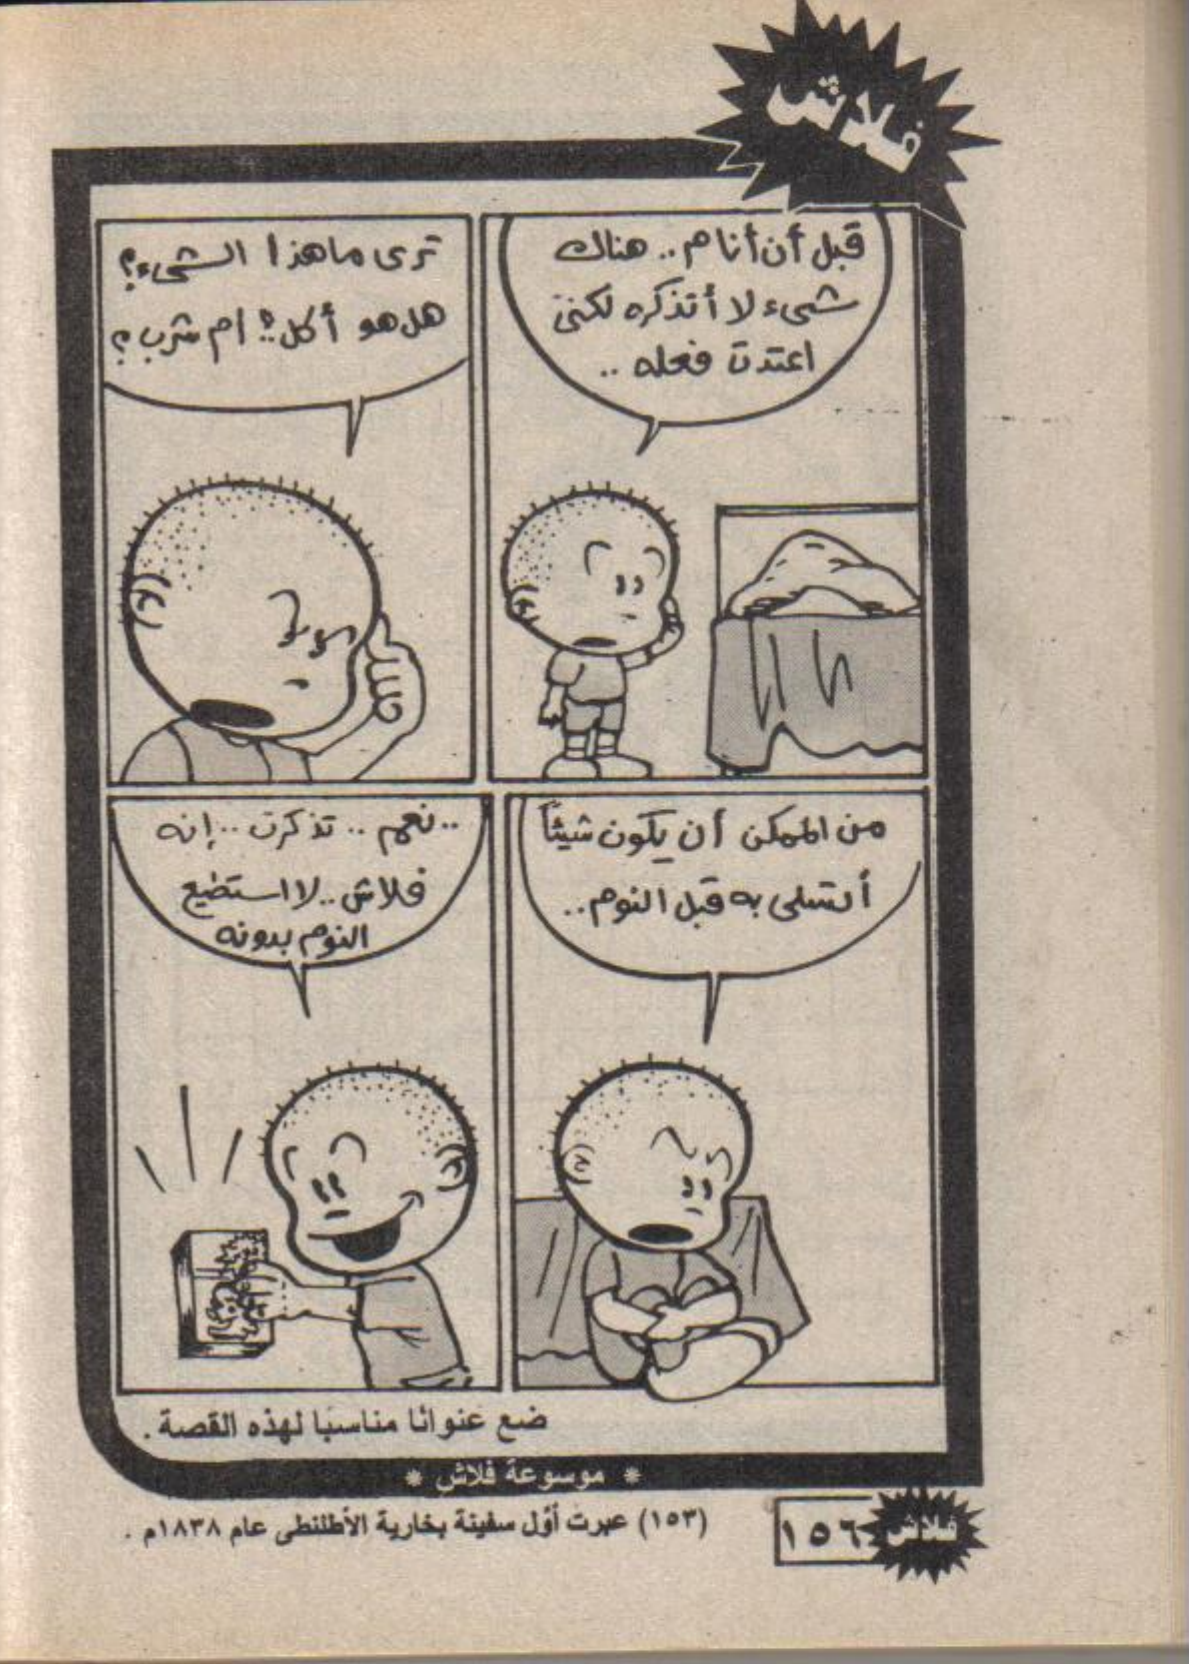 فلاش
قبل أن أنام.. هناك
شىء لا أتذكره لكننى
اعتدت فعله ..
ترى ما هذا الشىء؟
هل هو أكل؟! أم شرب؟
من الممكن أن يكون شيئاً
أتسلى به قبل النوم..
..نعم .. تذكرت .. إنه
فلاش.. لا استطيع
النوم بدونه
ضع عنوانا مناسبا لهذه القصة .
* موسوعة فلاش *
(١٥٣) عبرت أوّل سفينة بخارية الأطلنطى عام ١٨٣٨م .
١٥٦
فلاش